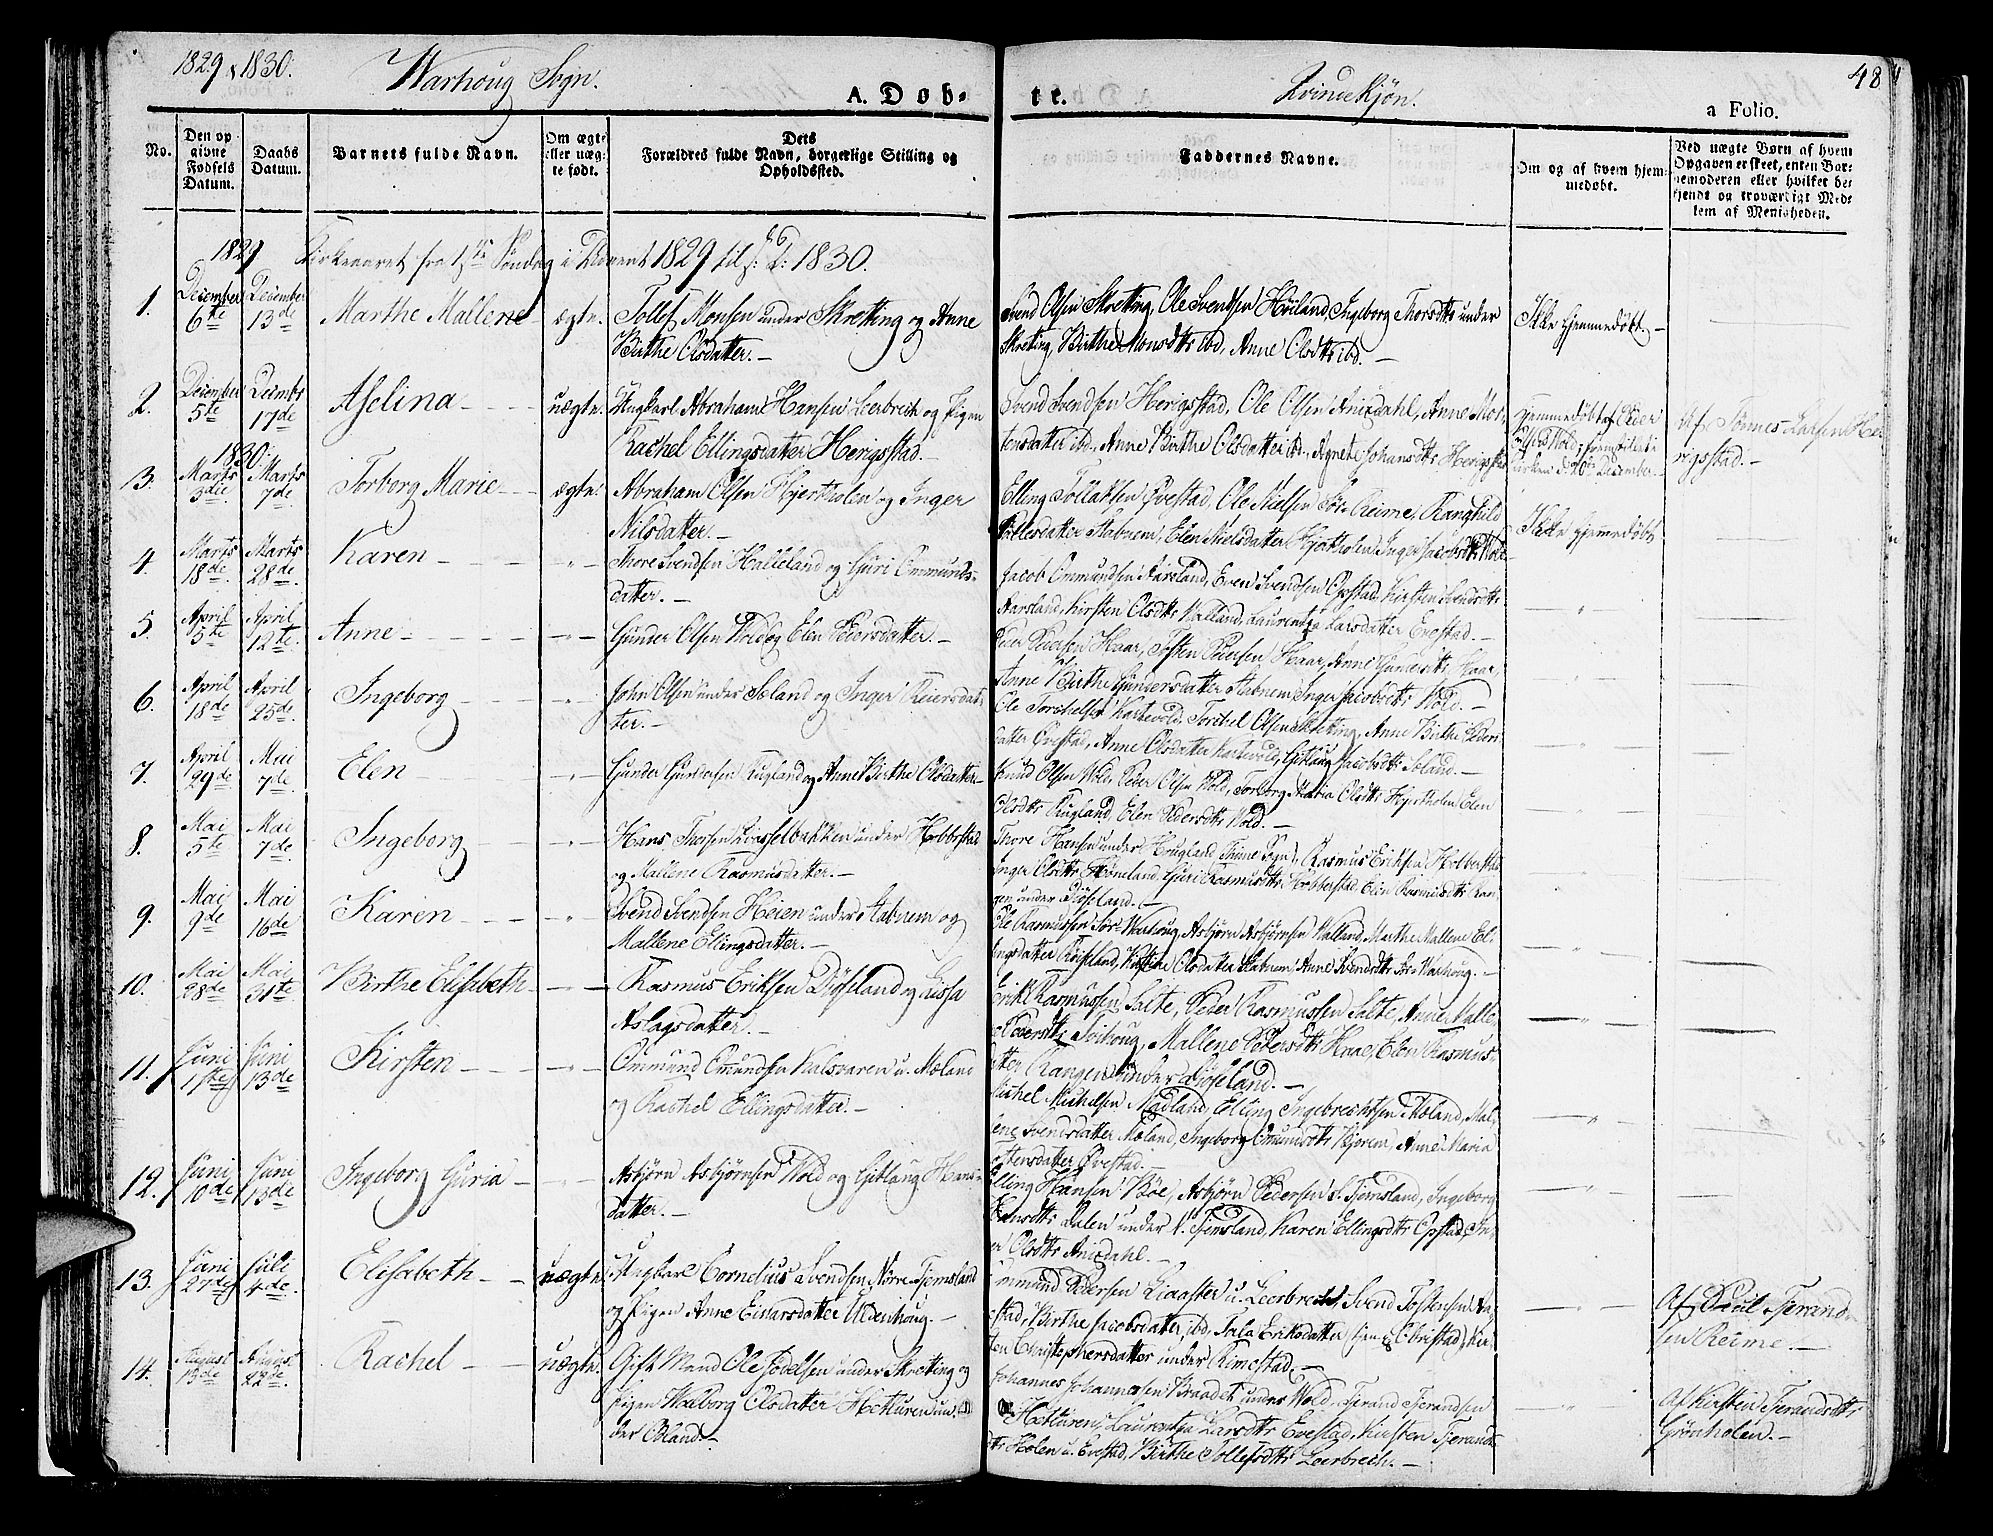 1829 & 1830.
Warhoug Sogn.
A. Døb-
te.
Qvindekjøn.
48
a Folio.
No.
Den opgivne Fødsels Datum.
Daabs Datum.
Barnets fulde Navn.
Om ægte eller uægte født.
Dets Forældres fulde Navn, borgerlige Stilling og Opholdssted.
Faddernes Navne.
Om og af hvem hjemmedøbt.
Ved uægte Børn af hvem Opgaven er skeet, enten Barnemoderen eller hvilket bekjendt og troværdigt Medlem af Menigheden.
1829 Kirkeaaret fra 1ste Søndag i Advent 1829 til s: D: 1830.
1. December 6te December 13de Marthe Mallene ægte. Tollef Monsen under Skretting og Anne
Birthe Olsdatter.
Svend Olsen Skretting, Ole Svendsen Høiland, Ingeborg Thorsdtr under
Skreting, Birthe Monsdtr ibd, Anne Olsdtr ibd.
Ikke hjemmedøbt
2. December 5te Decembr 17de Aselina uægte. Ungkarl Abraham Hansen Leerbrech og Pigen
Rachel Ellingsdatter Herigstad.
Svend Svendsen Herigstad, Ole Olsen Anisdahl, Anne Mor-
tensdatter ibd, Anne Birthe Olsdatter ibd, Agnete Johansdtr Herigstad
Hjemmedøbt af Peder
Af Tønnes Larsen He-
rigstad.
1830.
3. Marts 3die Marts 7de Torborg Marie ægte. Abraham Olsen Hjertholen og Inger
Nilsdatter.
Elling Tollaksen Øvestad, Ole Nielsen Sør Reime, Ranghild
Pallesdatter Stabnem, Elen Nielsdatter Hjortholen, Inger Jacobsdtr Wold
Ikke hjemmedøbt
4. Marts 18de Marts 28de Karen " Thore Svendsen Halleland og Guri Ommunds-
datter.
Jacob Ommundsen Aarsland, Even Svendsen Opstad, Kirsten Svendsdtr
Aarsland, Kirsten Olsdtr Walland, Laurentza Larsdatter Evestad.
5. April 5te April 12te Anne " Gunder Olsen Wold og Elen Pedersdatter.
Peder Pedersen Haar, Tosten Pedersen Haar, Anne Gundersdtr Haar,
Anne Birthe Gundersdatter Stabnem, Inger Jacobsdtr Wold.
6. April 18de April 25de Ingeborg " John Olsen under Søland og Inger Reiersdat-
ter.
Ole Torchelsen Kartevold, Torchel Olsen Skretting, Anne Birthe Peders-
datter Øvestad, Anne Olsdatter Kartevold, Gitlaug Jacobsdtr Søland.
7. April 29de Mai 7de Elen " Gunder Gundersen Rugland og Anne Birthe Olsdatter
Knud Olsen Wold, Peder Olsen Wold, Torborg Maria Olsdtr Hjortholen, Elen
Olsdtr Rugland, Elen Pedersdtr Wold.
8. Mai 5te Mai 7de Ingeborg " Hans Thorsen Qvasselbakken under Hobberstad
og Mallene Rasmusdatter.
Thore Hansen under Hougland Thime Sogn, Rasmus Eriksen Hobberstad
Inger Olsdtr Høneland, Guri Rasmusdtr Hobberstad, Elen Rasmusdtr Ran-
gen under Diøseland.
9. Mai 9de Mai 16de Karen " Svend Svendsen Heien under Stabnem og
Mallene Ellingsdatter.
Ole Rasmussen Sør-Warhoug, Asbjørn Asbjørnsen Walland, Marthe Mallene El-
lingsdatter Røiseland, Kirstine Olsdatter Stabnem, Anne Svendsdtr Sør-Warhoug.
10. Mai 28de Mai 31te Birthe Elisabeth Rasmus Eriksen Diøseland og Lissa
Aslagsdatter.
Erik Rasmussen Salte, Peder Rasmussen Salte, Anne Malle-
Pedersdtr Tvihoug, Mallene Pedersdtr Hrae, Elen Rasmus-
datter Rangen under Diøseland.
11. Juni 1ste Juni 13de Kirsten " Ommund Omundsen Kalsvaren u. Mæland
og Rachel Ellingsdatter.
Michel Michelsen Madland, Elling Ingebrechtsen Mæland, Mal-
lene Svendsdatter Mæland, Ingeborg Omundsdtr Bjoren, Anne Maria
Ostensdatter Øvestad.
12. Juni 10de Juni 13de Ingeborg Guria " Asbjørn Asbjørnsen Wold og Gitlaug Hans-
datter.
Elling Hansen Bøe, Asbjørn Pedersen S. Tjemsland, Ingeborg
Hansdtr Dalen under N. Tjemsland, Karen Ellingsdtr Opstad, In-
er Olsdtr Anisdahl.
13. Juni 27de Juli 4de Elisabeth uægte. Ungkarl Cornelius Svendsen Nørre-Tjemsland
og Pigen Anne Einarsdatter Ulvenhoug.
Ommund Pedersen Liaaster u. Leerbrech, Svend Tostensen Aa-
stad, Birthe Jacobsdatter ibd, Sola Eriksdatter
ten Christophersdatter under Rimestad.
Af Poul Tjerand-
sen Reime.
14. August 13de August 22de Rachel uægte. Gift Mand Ole Jodelsen under Skretting og
Pigen Walborg Olsdatter Hotturen un-
der Obland.
Johannes Johannessen Braadet under Wold, Tjerand Tjerandsen
Hoturen, Laurentza Larsdtr Evestad, Kirsten Tjerands-
dtr Holen u. Evestad, Birthe Tollefsdtr Leerbrech.
Af Kirsten Tjerandsdtr
Grønholen.